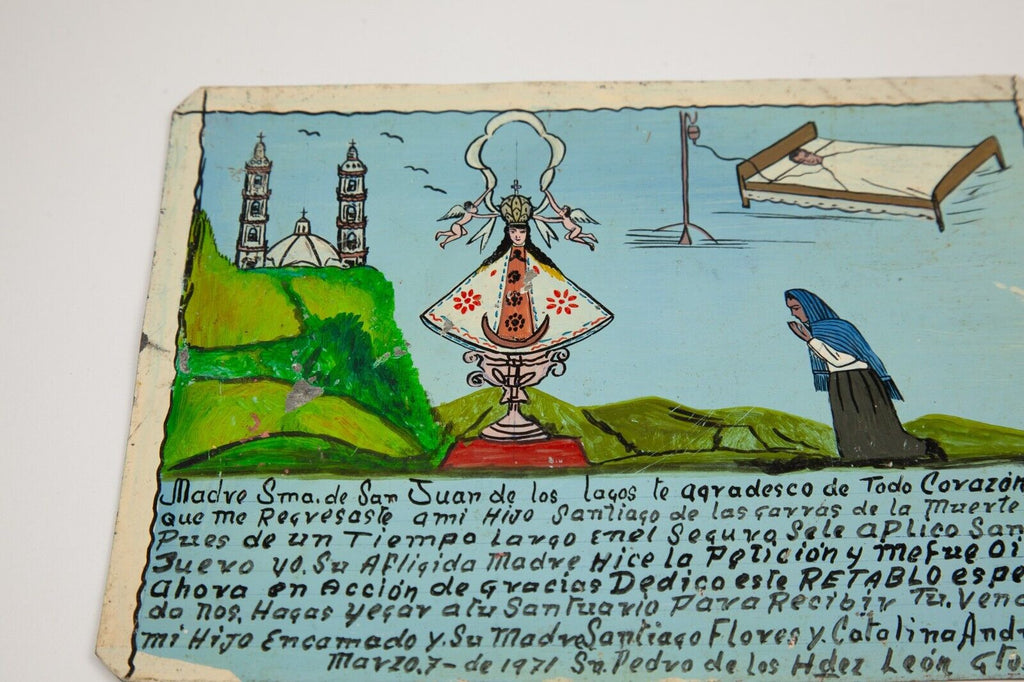 Madre Sma. de San Juan de los lagos te agradesco de Todo Corazón
que me Regresaste ami Hijo Santiago de las garras de la Muerte
Pues de un Tiempo Largo Enel Seguro Sele aplico San
Suero yo. Su Afligida Madre Hice la Petición y mefue Oi
ahora en Acción de gracias Dedico este RETABLO espe
do nos. Hagas yegar atu Santuario Para Recibir Tu. Vene
mi Hijo Encamado y. Su Madre Santiago Flores y. Catalina Andr
Marzo, 7- de 1971 Sn. Pedro de los Hdez León Gto